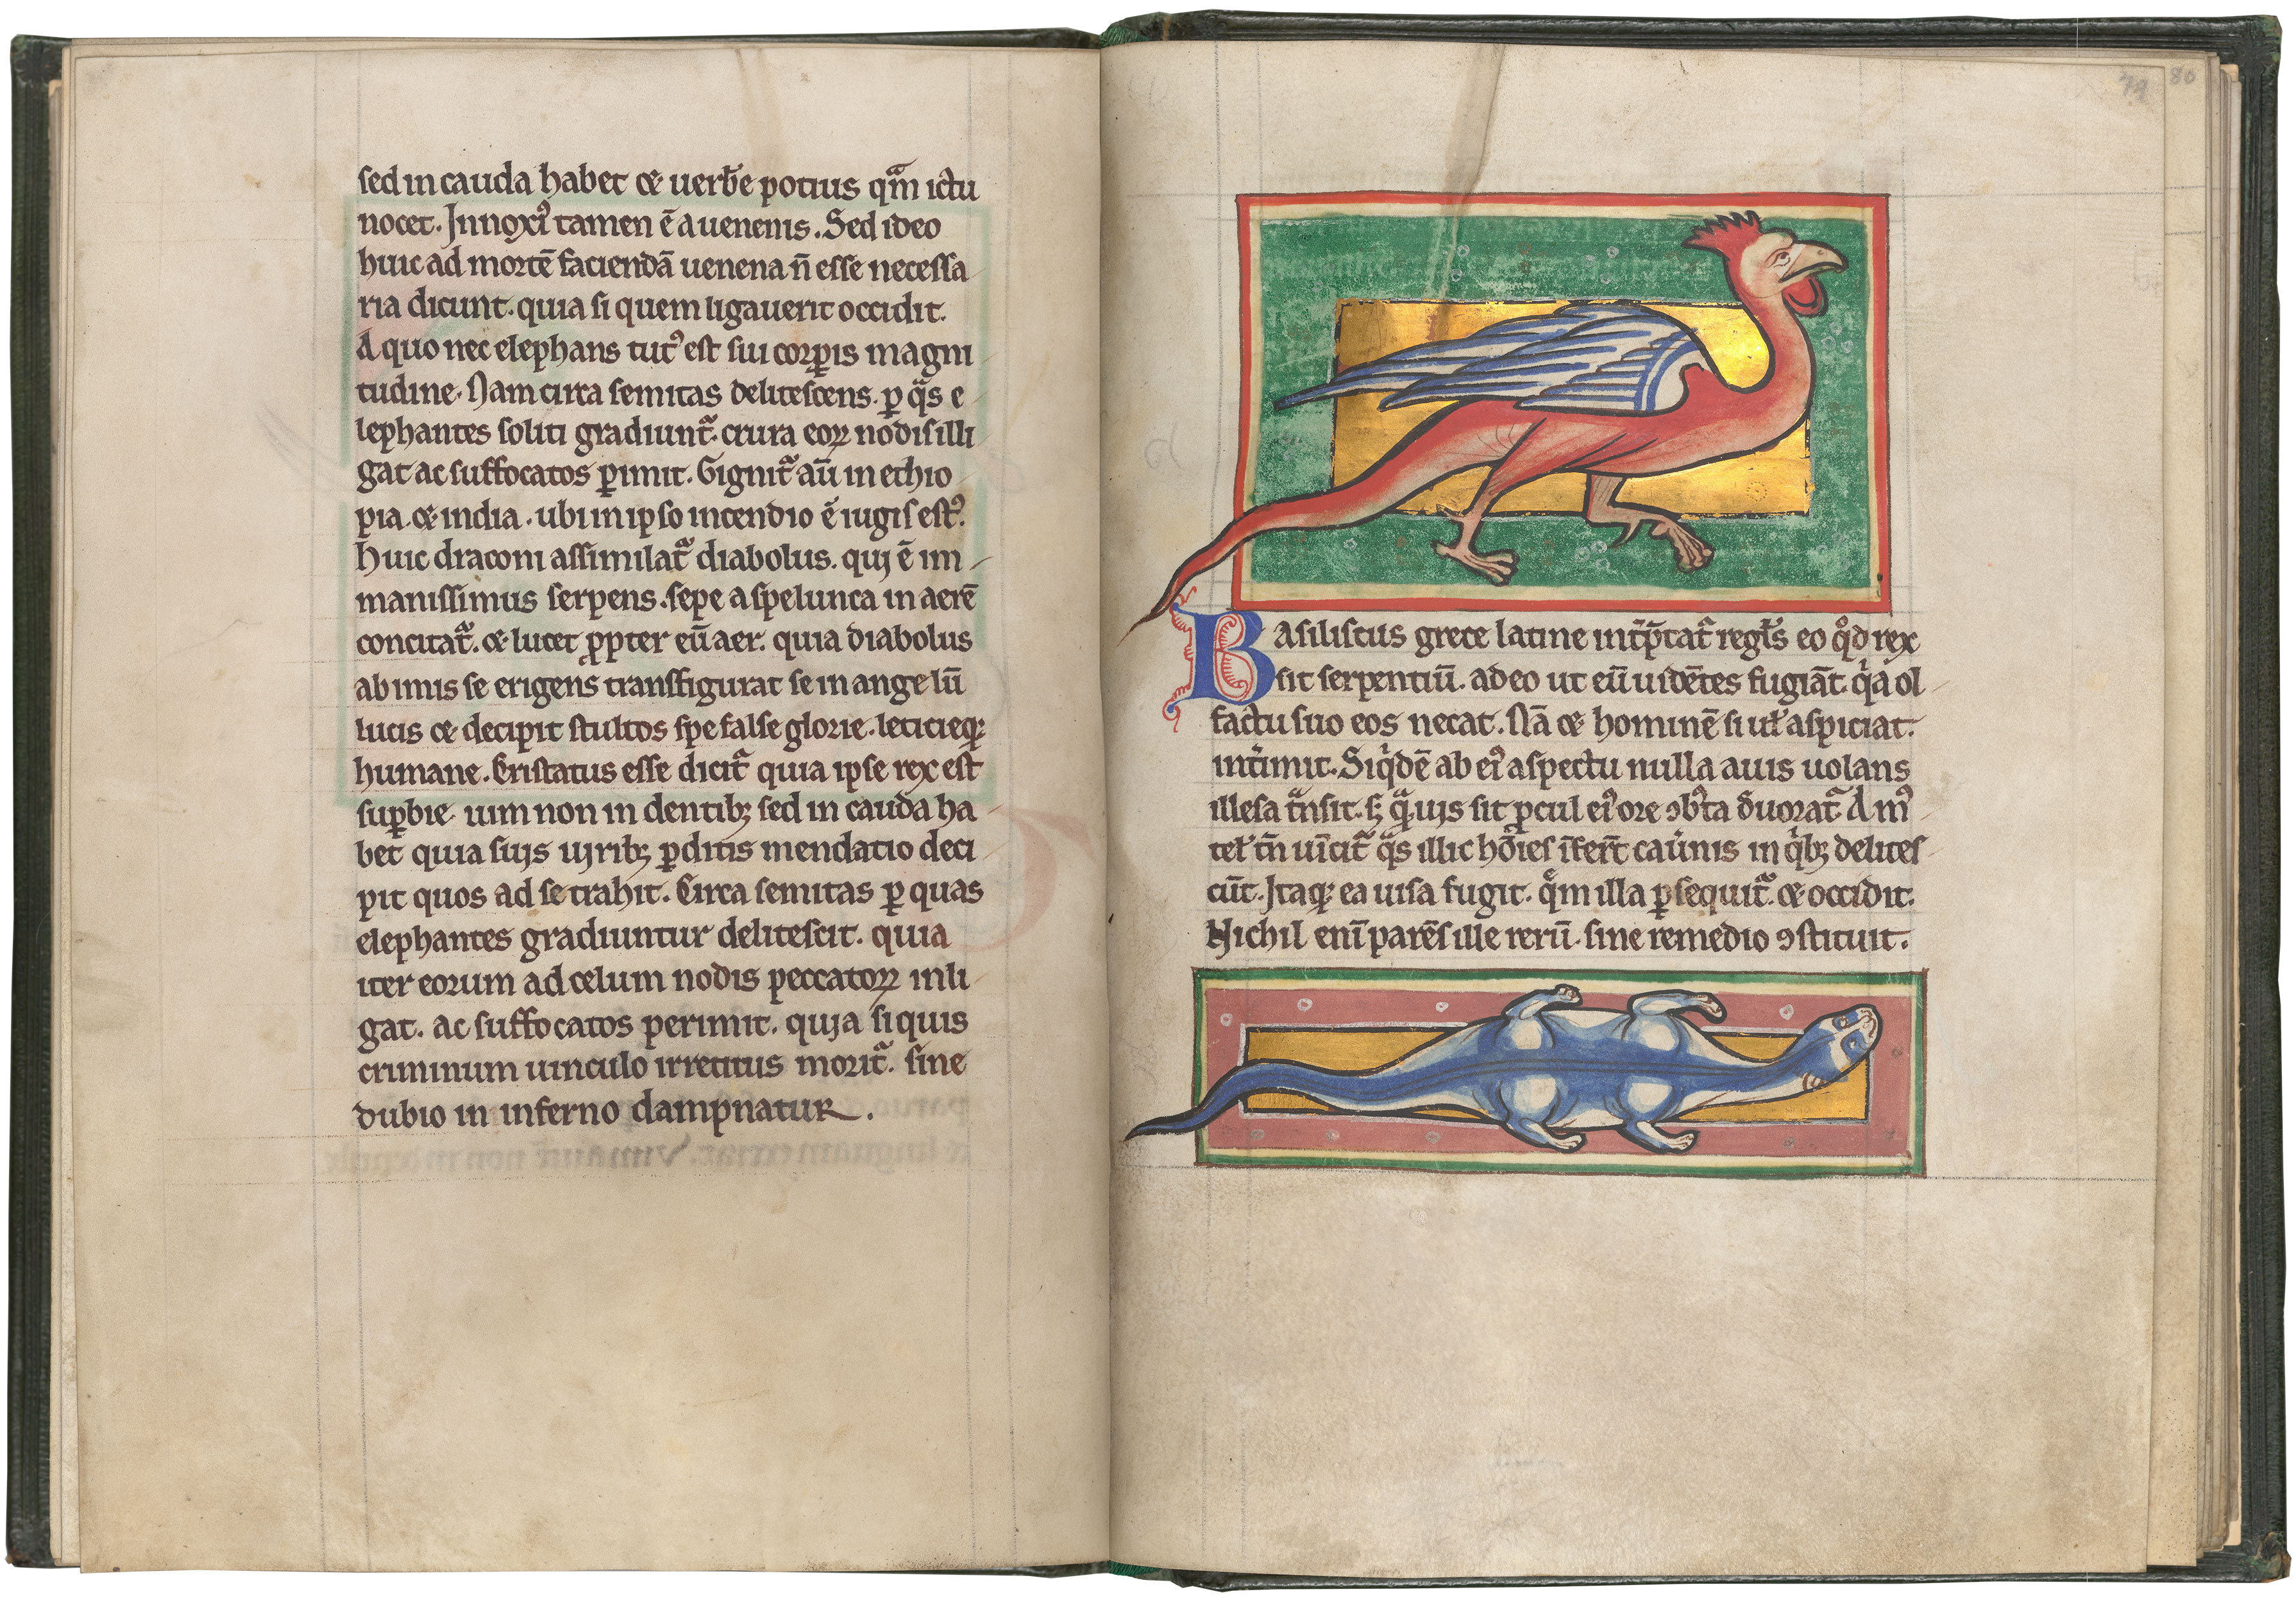 sed in cauda habet ⁊ uerb̄e potius qm̄ ictu
nocet. Innoxi᾿ tamen ē a uenenis. Sed ideo
huic ad mortē faciendā uenena n̄ esse necessa
ria dicunt. quia si quem ligauerit occidit.
A quo nec elephans tut᾿ est sui corꝑis magni
tudine. Nam circa semitas delitescens. ꝑ qᷓs e
lephantes soliti gradiuntᷓ. crura eoꝝ nodis illi
gat ac suffocatos ꝑimit. Gignitᷓ aū in ethio
pia. ⁊ india. ubi in ipso incendio ē iugis est᾿.
Huic draconi assimilatᷓ diabolus. qui ē im
manissimus serpens. sepe a spelunca in aerē
concitatᷓ. ⁊ lucet ꝓpter eū aer. quia diabolus
ab imis se erigens transfigurat se in angelū
lucis ⁊ decipit stultos spe false glorie. leticieqꝫ
humane. Cristatus esse dicitᷓ quia ipse rex est
suꝑbie. uim non in dentibꝫ sed in cauda ha
bet quia suis uiribꝫ ꝑditis mendatio deci
pit quos ad se trahit. Circa semitas ꝑ quas
elephantes gradiuntur delitescit. quia
iter eorum ad celum nodis peccatoꝝ inli
gat. ac suffocatos perimit. quia si quis
criminum uinculo irretitus moritᷓ. sine
dubio in inferno dampnatur.
79
80
Basiliscus grece latine int̄p̄tatᷓ regl̄s eo qͦd rex
sit serpentiū. adeo ut eū uidētes fugiāt. qͥa ol
factu suo eos necat. Nā ⁊ hominē si uł aspiciat.
int̄imit. Siqͥdē ab ei᾿ aspectu nulla auis uolans
illesa tᷓnsit. sꝫ qᷓuis sit ꝓcul ei᾿ ore ꝯb᾿ta d̄uoratᷓ. A m᾿
teł tn̄ uīcitᷓ qᷓs illic hōies īfert̄ cau̾nis in qͥbꝫ delites
cūt. Itaqꝫ ea uisa fugit. qͤm illa ꝑsequitᷓ. ⁊ occidit.
Nichil enī parēs ille rerū. sine remedio ꝯstituit.